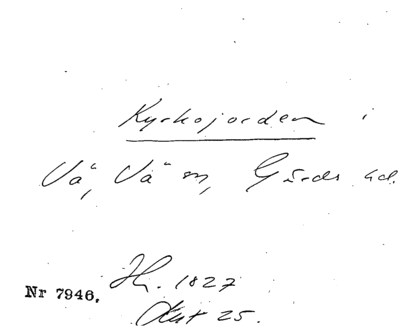 Kyrkojorden i
Vä, Vä sn, Gärds hd.
Nr 7946. Hr. 1827
Akt 25.